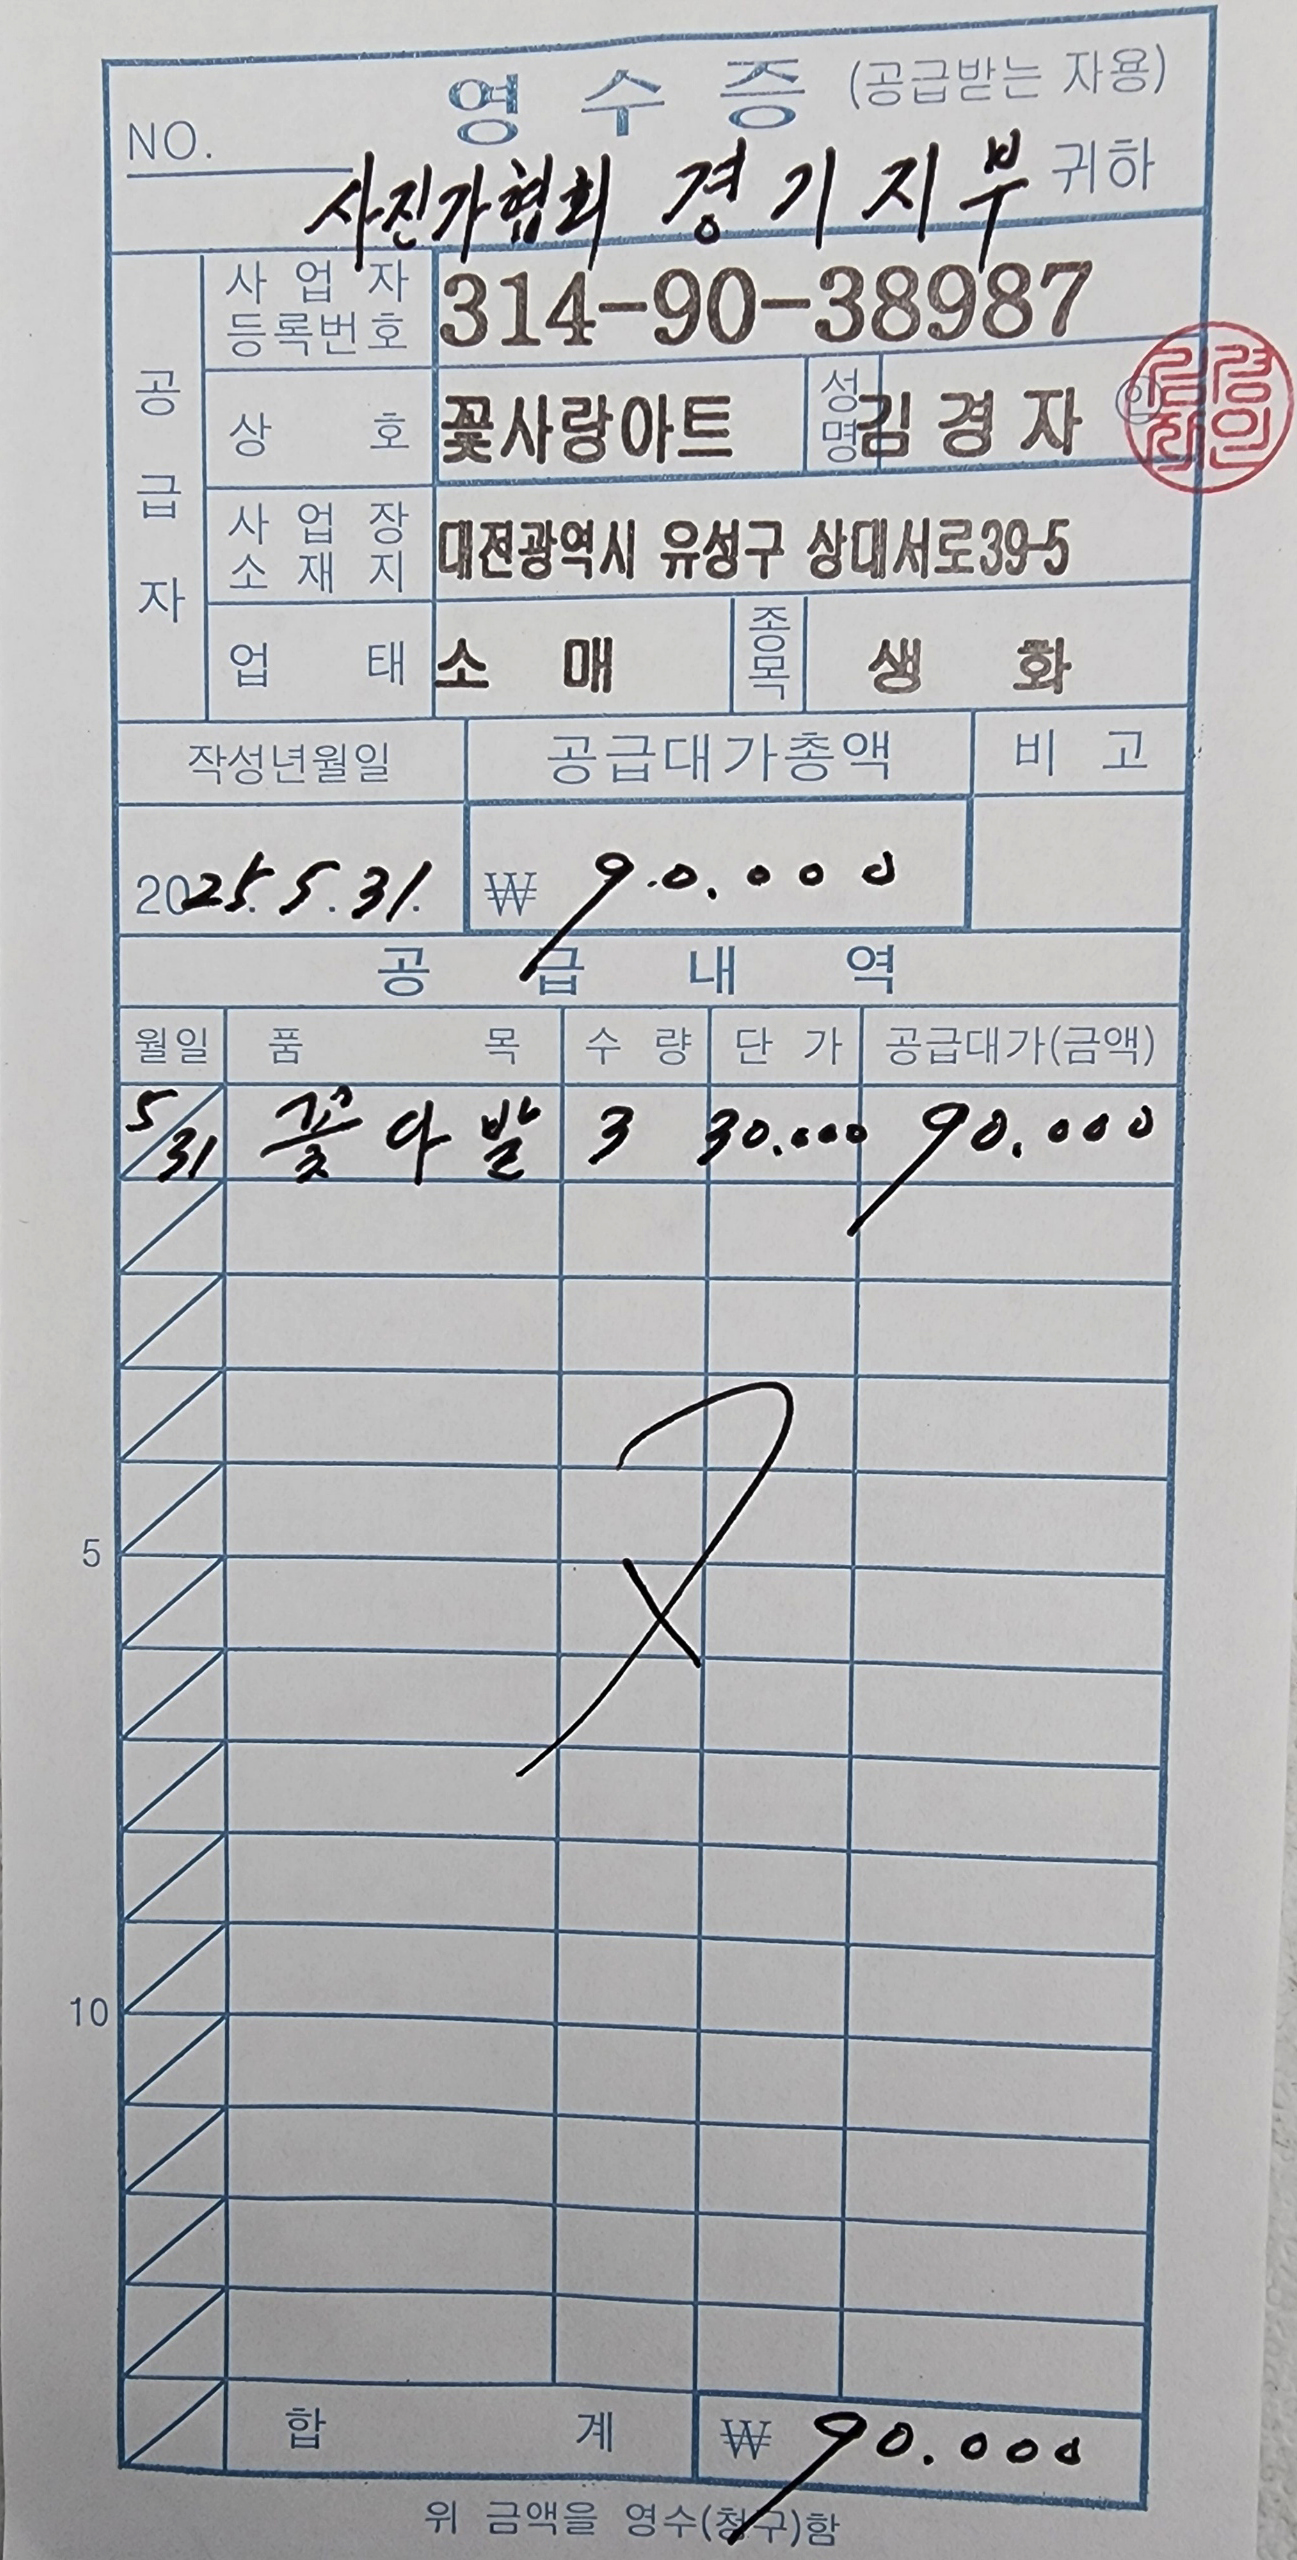 영 수 증 (공급받는 자용)
NO.
사진가협회 경기지부 귀하
공급자
사업자등록번호 314-90-38987
상 호 꽃사랑아트 성명 김경자 인
사업장소재지 대전광역시 유성구 상대서로39-5
업 태 소 매 종목 생 화
작성년월일 공급대가총액 비 고
2025. 5. 31. ₩ 90.000
공 급 내 역
월일 품 목 수 량 단 가 공급대가(금액)
5/31 꽃다발 3 30.000 90.000
5
10
합 계 ₩ 90.000
위 금액을 영수(청구)함